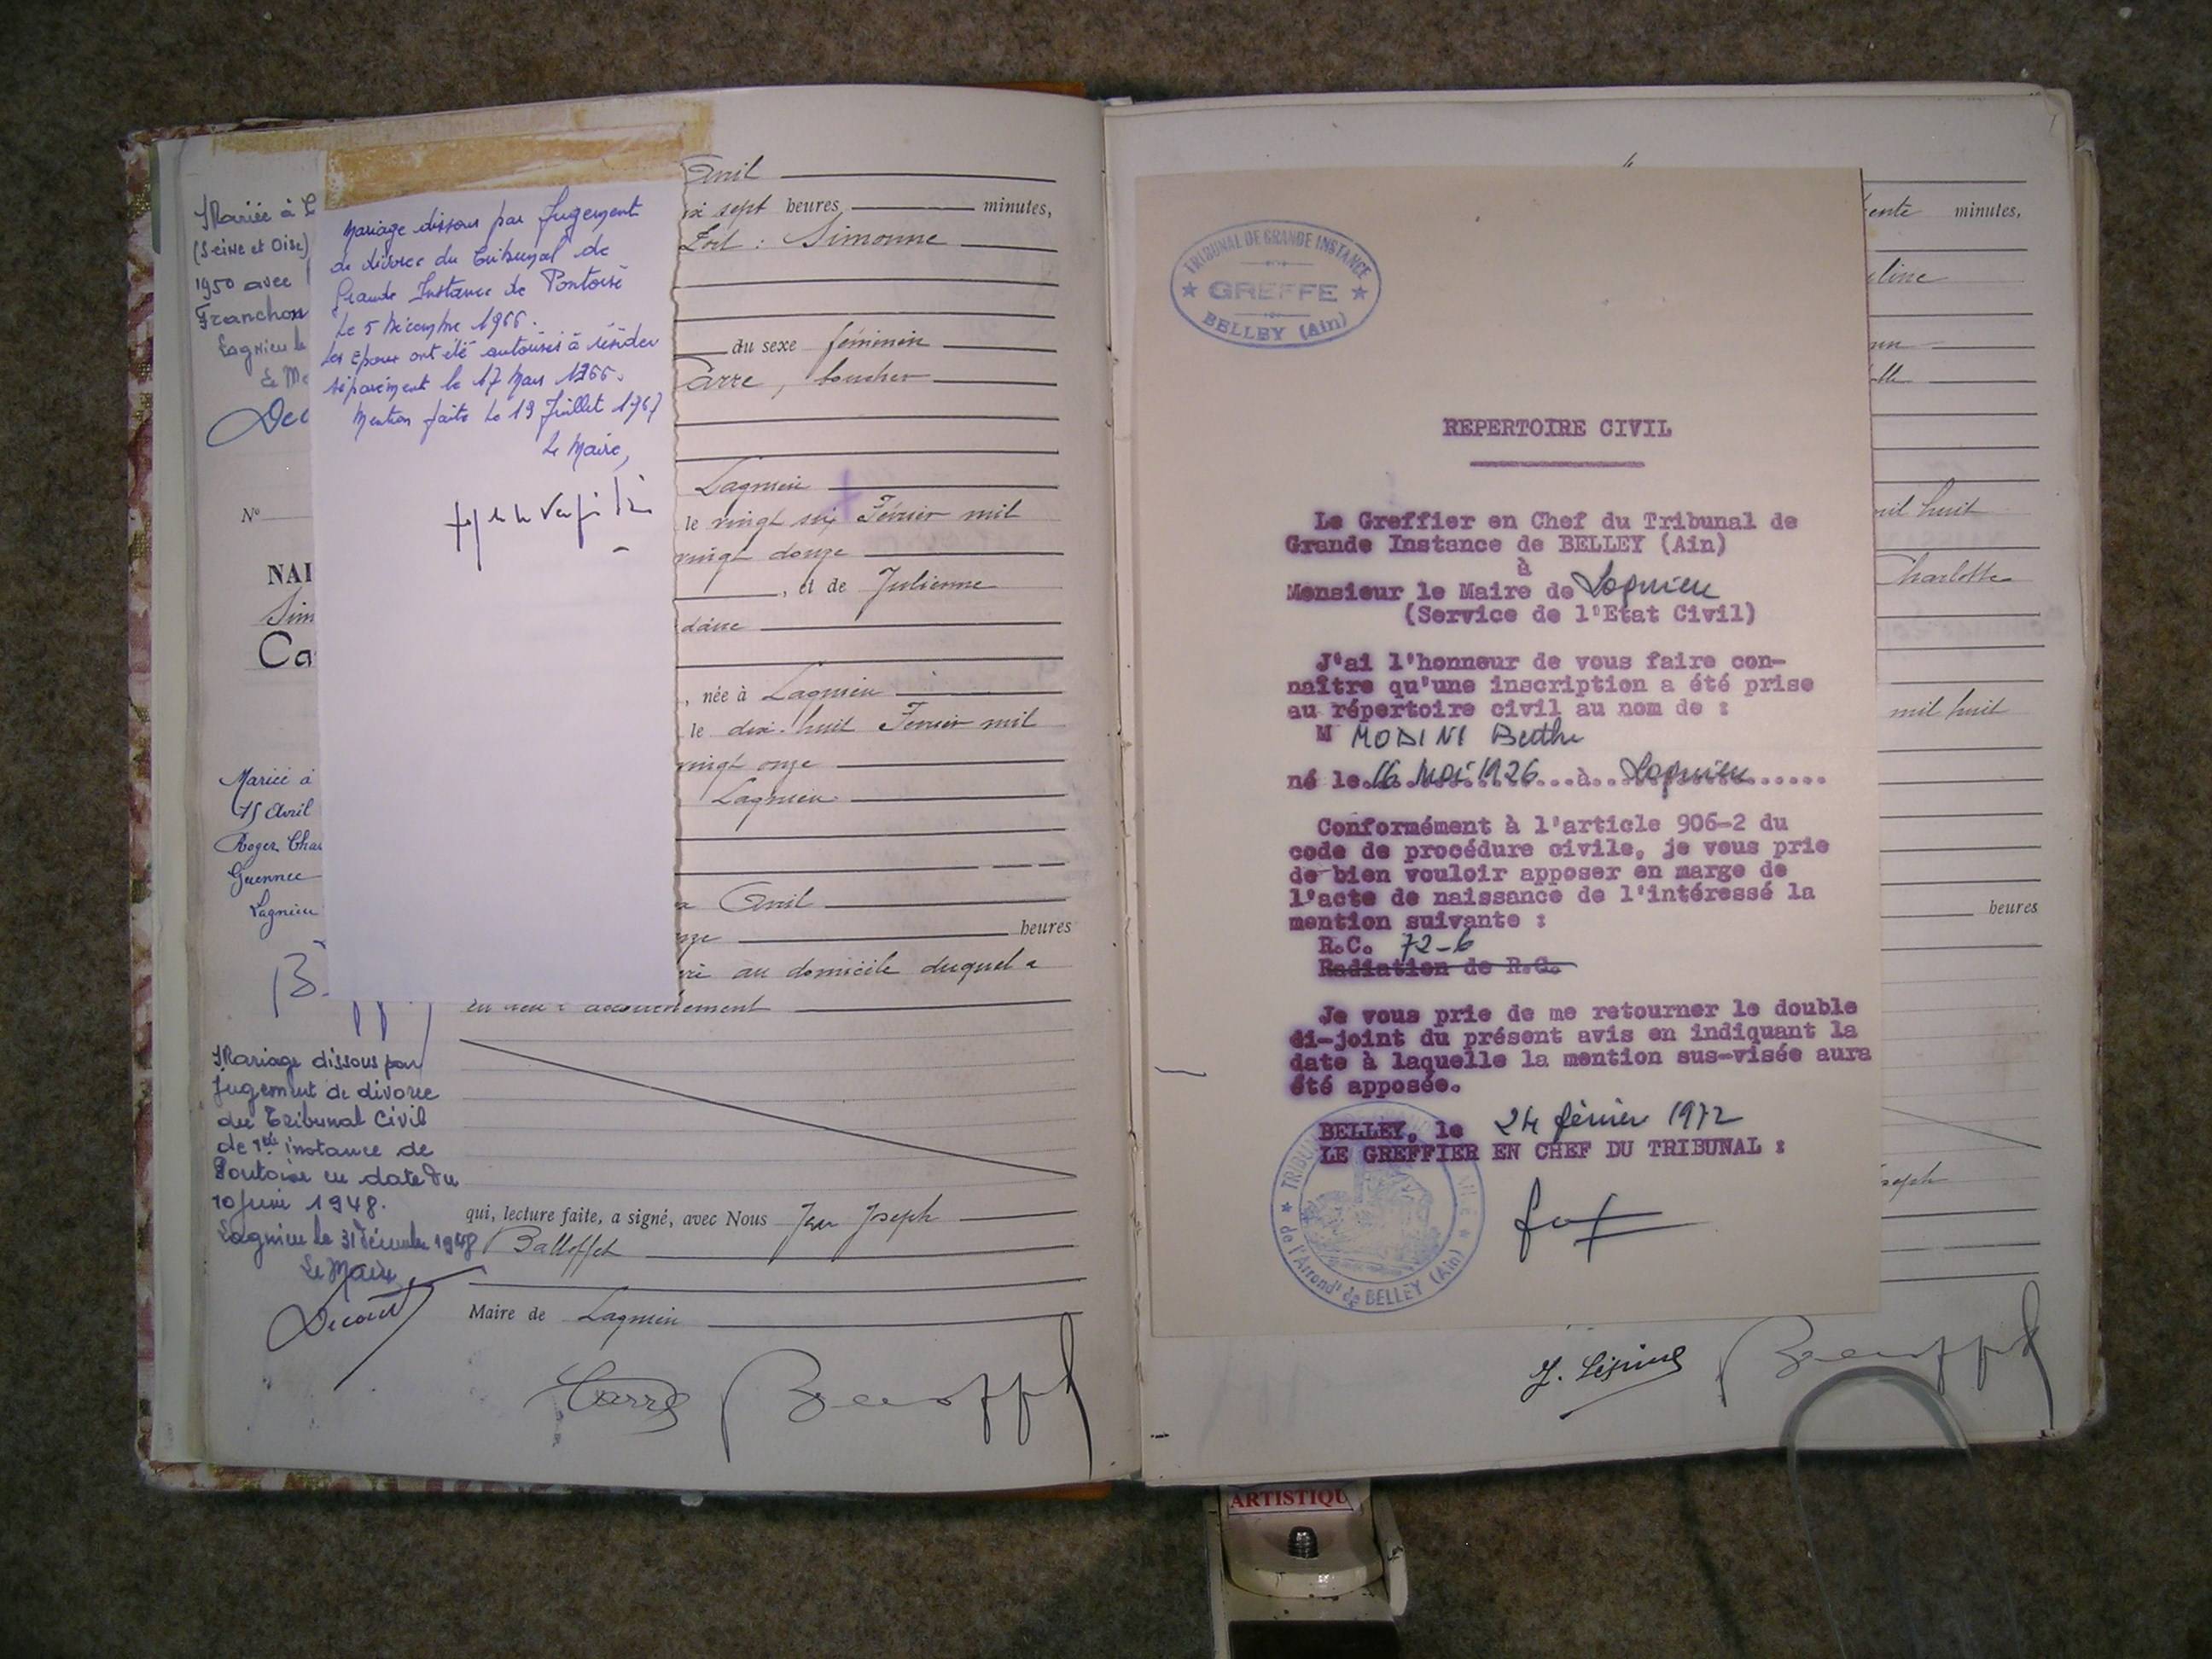 Mariée à
(Seine et Oise)
1950 avec
Franchon
Lagnieu le
Mariage dissous par Jugement
de divorce du Tribunal de
Grande Instance de Pontoise
le 5 Décembre 1966.
Les Epoux ont été autorisés à résider
séparément le 17 Mars 1966.
Mention faite le 19 Juillet 1967
Le Maire,
N°
NAI
Sim
Ca
Mariée à
15 Avril
Roger Cha
Guennec
Lagnieu
Mariage dissous par
Jugement de divorce
du Tribunal Civil
de 1ère instance de
Pontoise en date du
10 Juin 1948.
Lagnieu le 31 décembre 1948
Le Maire
Decourt
Avril
sept heures minutes,
Simonne
du sexe féminin
Carre, boucher
Lagnieu
le vingt six Février mil
vingt douze
, et de Julienne
, née à Lagnieu
le dix-huit Février mil
vingt onze
Lagnieu
Avril
heures
au domicile duquel a
eu lieu l'accouchement
qui, lecture faite, a signé, avec Nous Jean Joseph
Balloffet
Maire de Lagnieu
Carre
TRIBUNAL DE GRANDE INSTANCE
★ GREFFE ★
BELLEY (Ain)
REPERTOIRE CIVIL
Le Greffier en Chef du Tribunal de
Grande Instance de BELLEY (Ain)
à
Monsieur le Maire de Lagnieu
(Service de l'Etat Civil)
J'ai l'honneur de vous faire con-
naître qu'une inscription a été prise
au répertoire civil au nom de :
M MODINI Berthe
né le 16 Mai 1926...à...Lagnieu......
Conformément à l'article 906-2 du
code de procédure civile, je vous prie
de bien vouloir apposer en marge de
l'acte de naissance de l'intéressé la
mention suivante :
R.C. 72-6
Radiation de R.C.
Je vous prie de me retourner le double
ci-joint du présent avis en indiquant la
date à laquelle la mention sus-visée aura
été apposée.
BELLEY, le 24 février 1972
LE GREFFIER EN CHEF DU TRIBUNAL :
de l'Arrondt de BELLEY (Ain)
ente minutes,
line
mil huit
Charlotte
mil huit
heures
oseph
ARTISTIQU